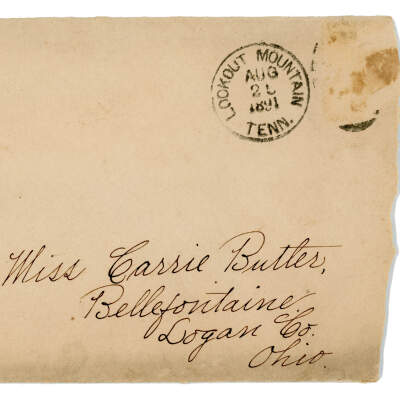 LOOKOUT MOUNTAIN
AUG
1891
TENN.
Miss Carrie Butler,
Bellefontaine
Logan Co.
Ohio.